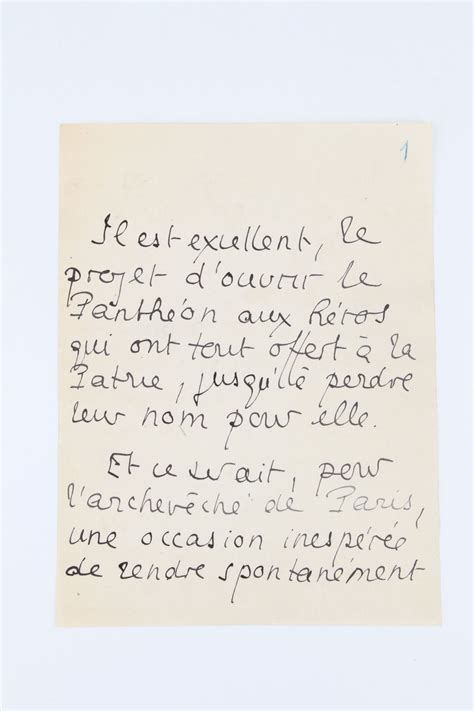 1
Il est excellent, le
projet d'ouvrir le
Panthéon aux héros
qui ont tout offert à la
Patrie, jusqu'à perdre
leur nom pour elle.
Et ce serait, pour
l'archevêché de Paris,
une occasion inespérée
de rendre spontanément